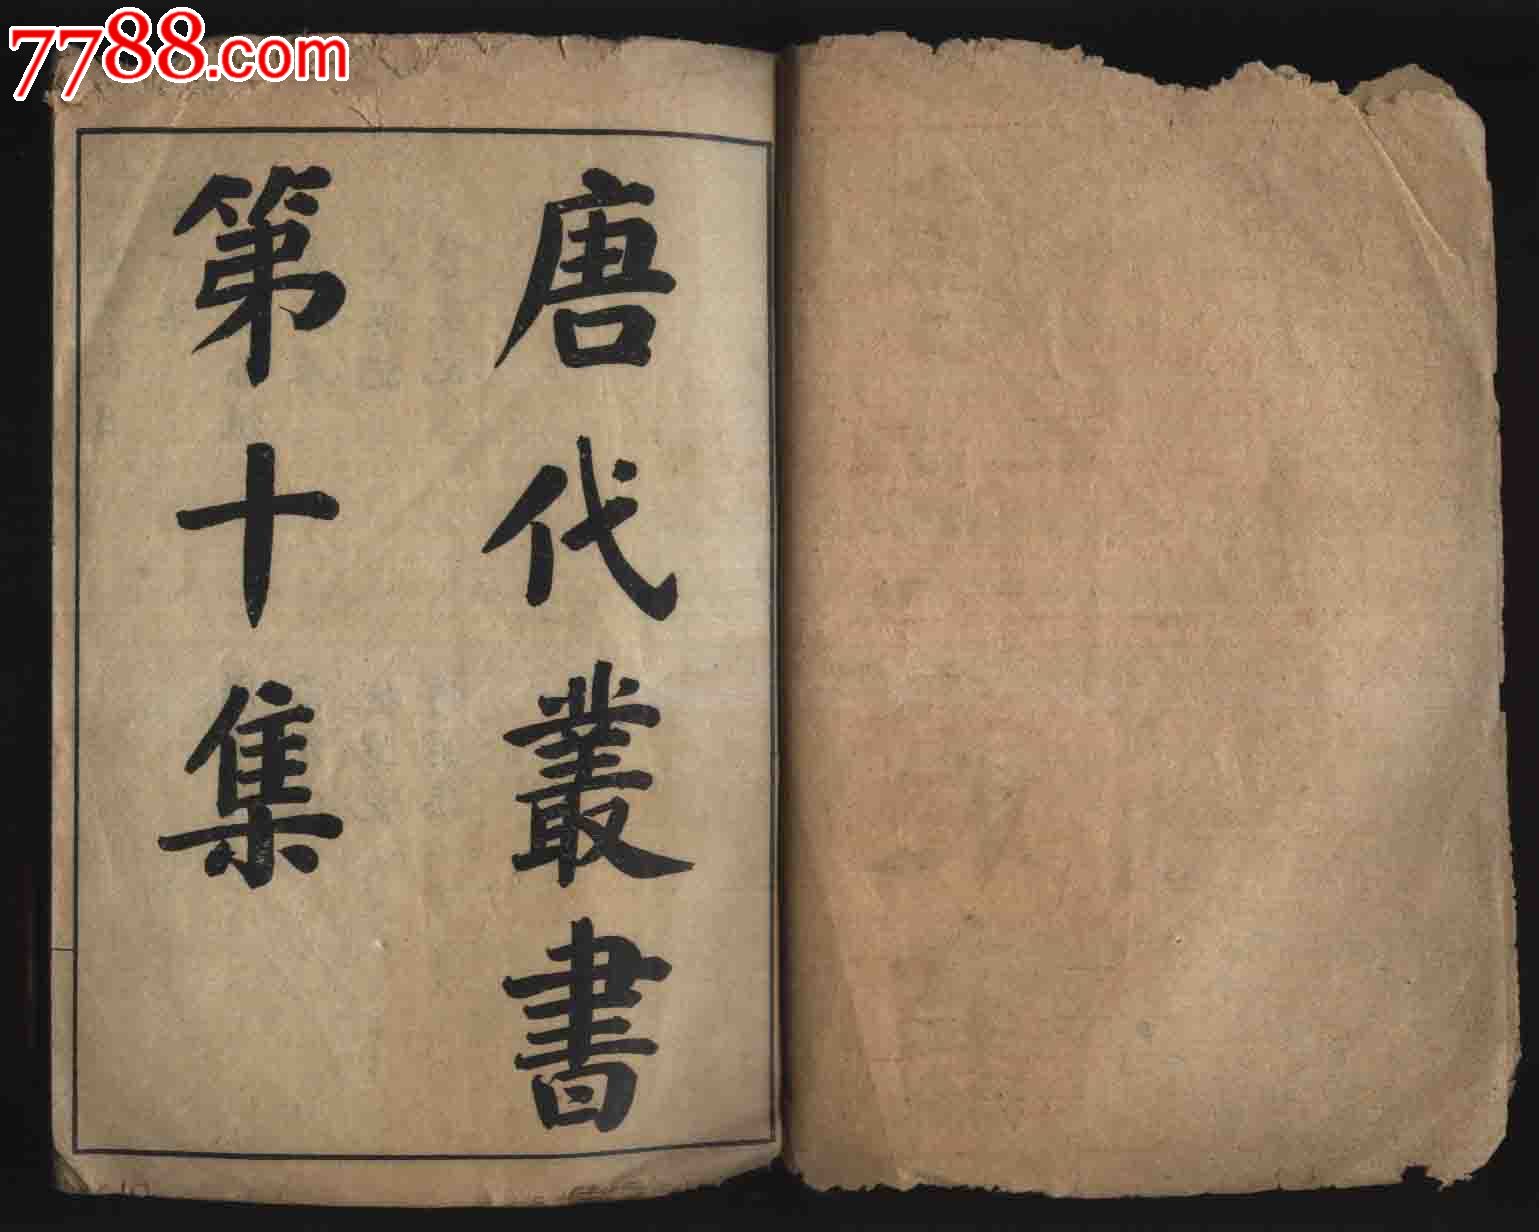 7788.com
唐代叢書
第十集